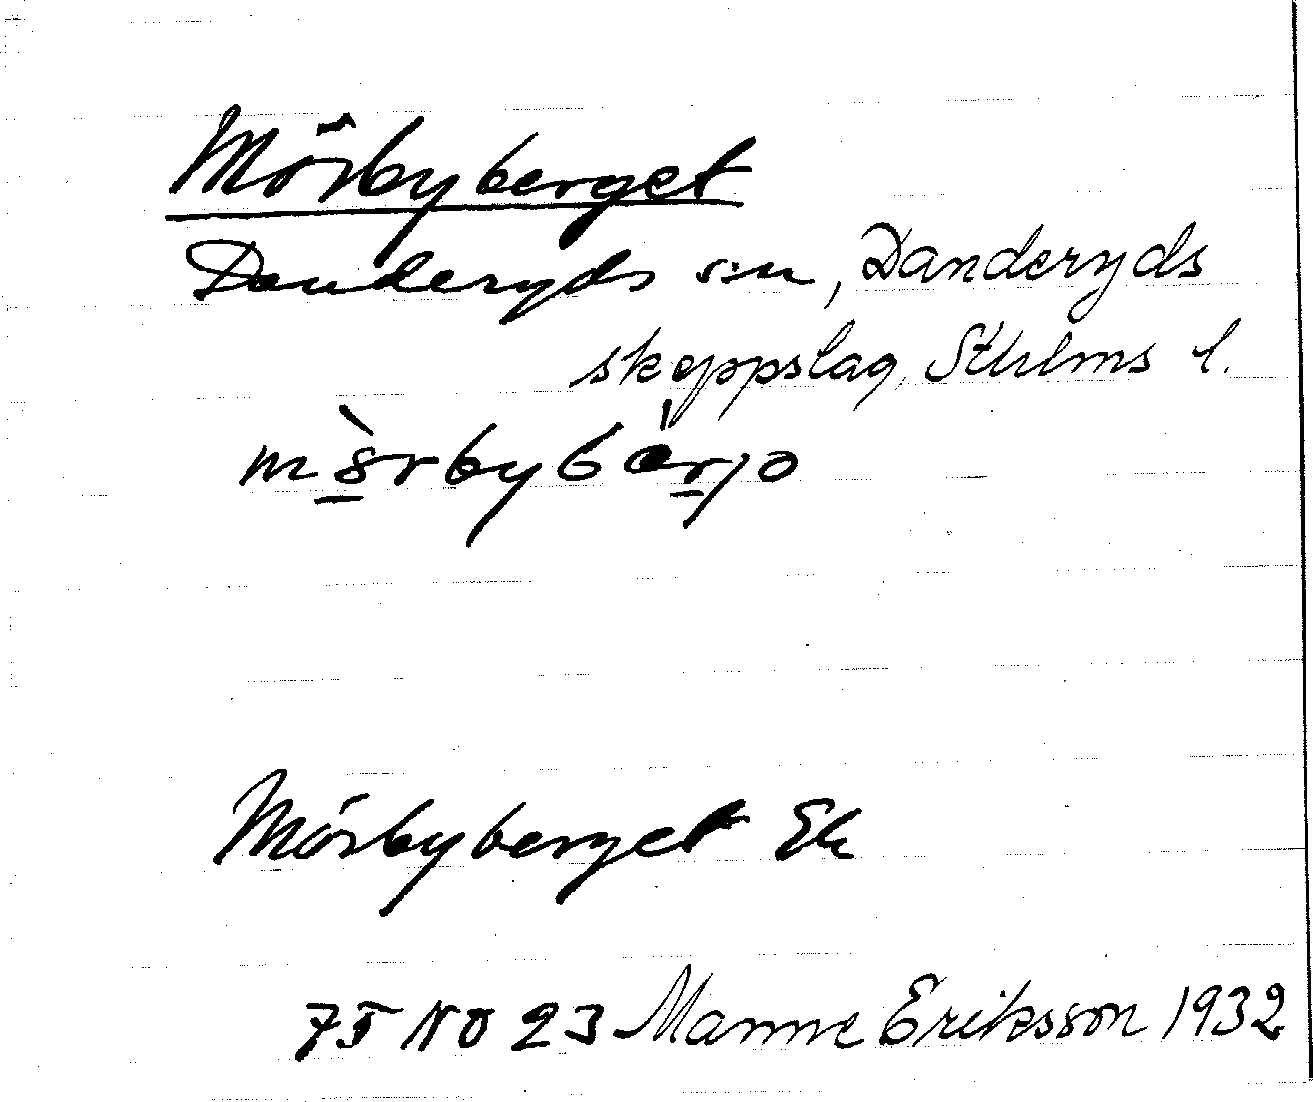 Mörbyberget
Danderyds sn, Danderyds
skeppslag, Sthlms l.
Mörbyberget Ek
75 NO 23 Manne Eriksson 1932